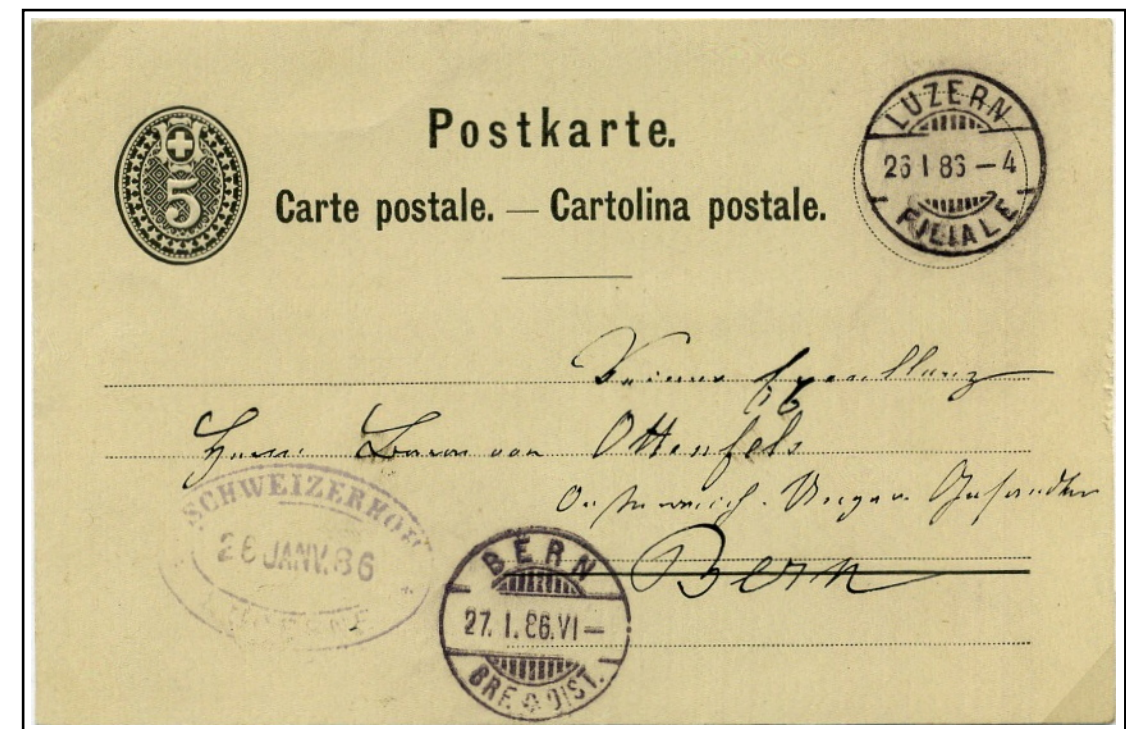 Postkarte.
Carte postale. — Cartolina postale.
5
LUZERN
26 I 86 — 4
FILIALE
Seiner Excellenz
Herrn Baron von Ottenfels
Oesterreich. Ungar. Gesandter
Bern
SCHWEIZERHOF
26 JANV. 86
LUCERNE
BERN
27. I. 86. VI —
BRF. DIST.